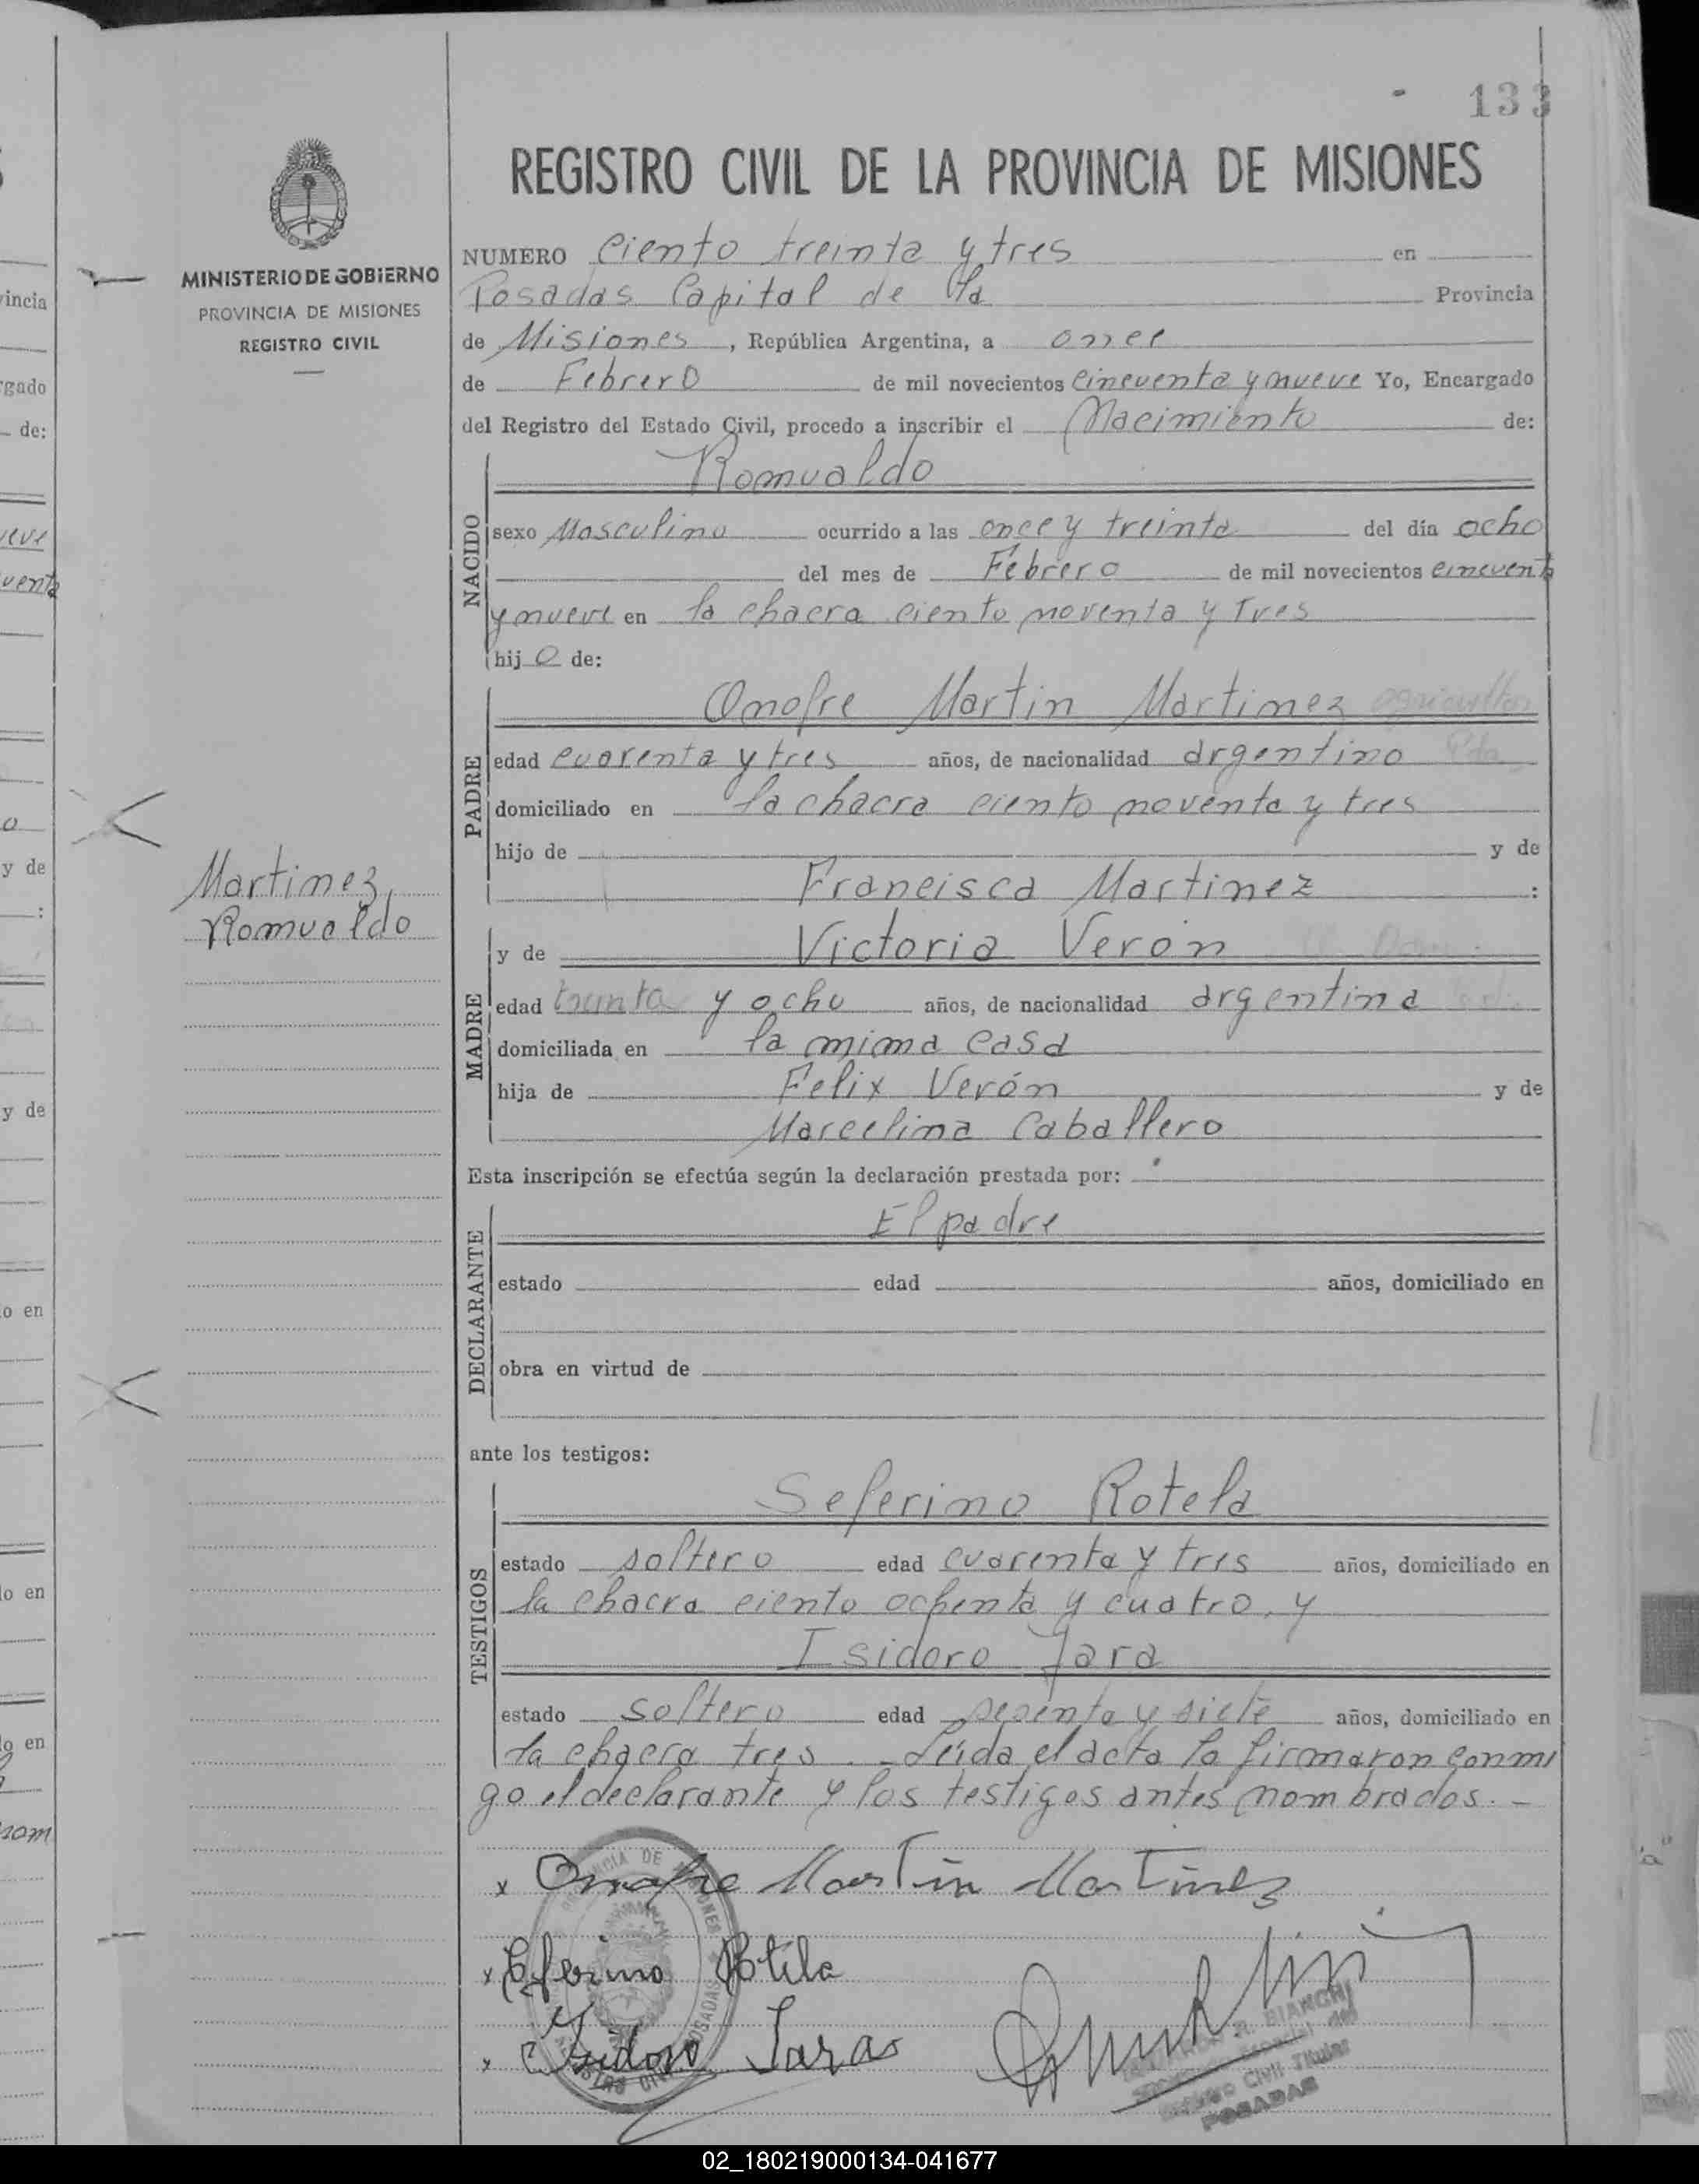 133
REGISTRO CIVIL DE LA PROVINCIA DE MISIONES
MINISTERIO DE GOBIERNO
PROVINCIA DE MISIONES
REGISTRO CIVIL
NUMERO Ciento treinta y tres en
Posadas Capital de la Provincia
de Misiones, República Argentina, a once
de Febrero de mil novecientos cincuenta y nueve Yo, Encargado
del Registro del Estado Civil, procedo a inscribir el Nacimiento de:
Romualdo
NACIDO
sexo Masculino ocurrido a las once y treinta del día ocho
del mes de Febrero de mil novecientos cincuenta
y nueve en la chacra ciento noventa y tres
hijo de:
Onofre Martin Martinez agricultor
PADRE
edad cuarenta y tres años, de nacionalidad argentino
domiciliado en la chacra ciento noventa y tres
hijo de y de
Francisca Martinez :
Martinez,
Romualdo
y de Victoria Verón
MADRE
edad treinta y ocho años, de nacionalidad argentina
domiciliada en la mima casa
hija de Felix Verón y de
Marcelina Caballero
Esta inscripción se efectúa según la declaración prestada por:
El padre
DECLARANTE
estado edad años, domiciliado en
obra en virtud de
ante los testigos:
Seferino Rotela
TESTIGOS
estado soltero edad cuarenta y tres años, domiciliado en
la chacra ciento ochenta y cuatro, y
Isidoro Jara
estado soltero edad sesenta y siete años, domiciliado en
la chacra tres. - Leída el acta la firmaron conmi
go el declarante y los testigos antes nombrados. -
x Onofre Martin Martinez
x Ceferino Rotela
x Isidoro Jara
BIANCHI
Civil Titular
POSADAS
02_180219000134-041677